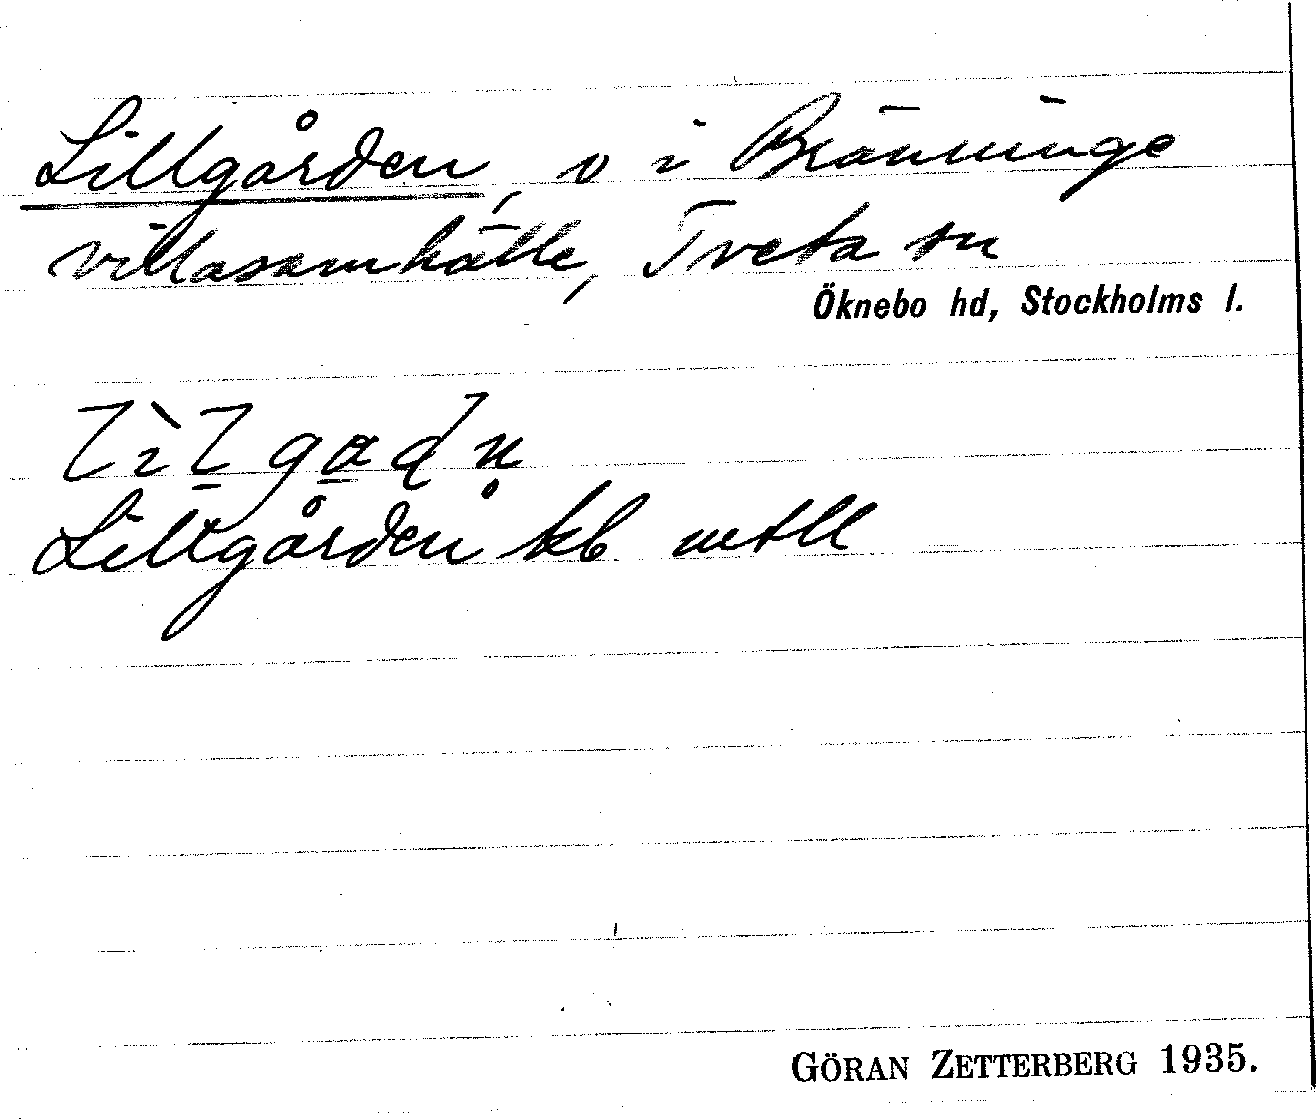 Lillgården, v i Bränninge
villasamhälle, Tveta sn
Öknebo hd, Stockholms l.
Lillgården kb mtll
GÖRAN ZETTERBERG 1935.